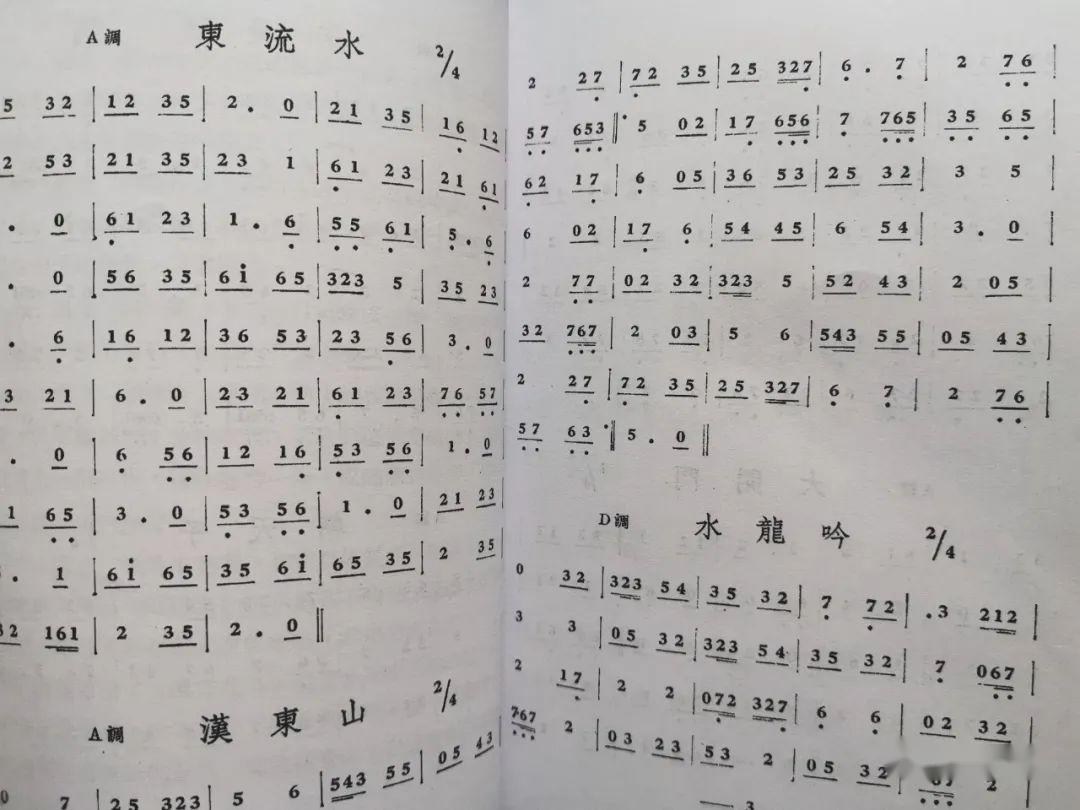 A調 東流水 2/4
5 32 | 12 35 | 2 . 0 | 21 35 | 16 12
2 53 | 21 35 | 23 1 | 61 23 | 21 61
. 0 | 61 23 | 1 . 6 | 55 61 | 5 . 6
. 0 | 56 35 | 6i 65 | 323 5 | 35 23
. 6 | 16 12 | 36 53 | 23 56 | 3 . 0
3 21 | 6 . 0 | 23 21 | 61 23 | 76 57
. 0 | 6 56 | 12 16 | 53 56 | 1 . 0
1 65 | 3 . 0 | 53 56 | 1 . 0 | 21 23
. 1 | 6i 65 | 35 6i | 65 35 | 2 35
32 161 | 2 35 | 2 . 0 ‖
A調 漢東山 2/4
0 7 | 25 323 | 5 6 | 543 55 | 05 43
2 27 | 72 35 | 25 327 | 6 . 7 | 2 76 |
57 653 ‖ 5 02 | 17 656 | 7 765 | 35 65 |
62 17 | 6 05 | 36 53 | 25 32 | 3 5 |
6 02 | 17 6 | 54 45 | 6 54 | 3 . 0 |
2 77 | 02 32 | 323 5 | 52 43 | 2 05 |
32 767 | 2 03 | 5 6 | 543 55 | 05 43 |
2 27 | 72 35 | 25 327 | 6 7 | 2 76 |
57 63 ‖ 5 . 0 ‖
D調 水龍吟 2/4
0 32 | 323 54 | 35 32 | 7 72 | .3 212 |
3 3 | 05 32 | 323 54 | 35 32 | 7 067 |
2 17 | 2 2 | 072 327 | 6 6 | 02 32 |
767 2 | 03 23 | 53 2 | 05 32 | 2 |
3